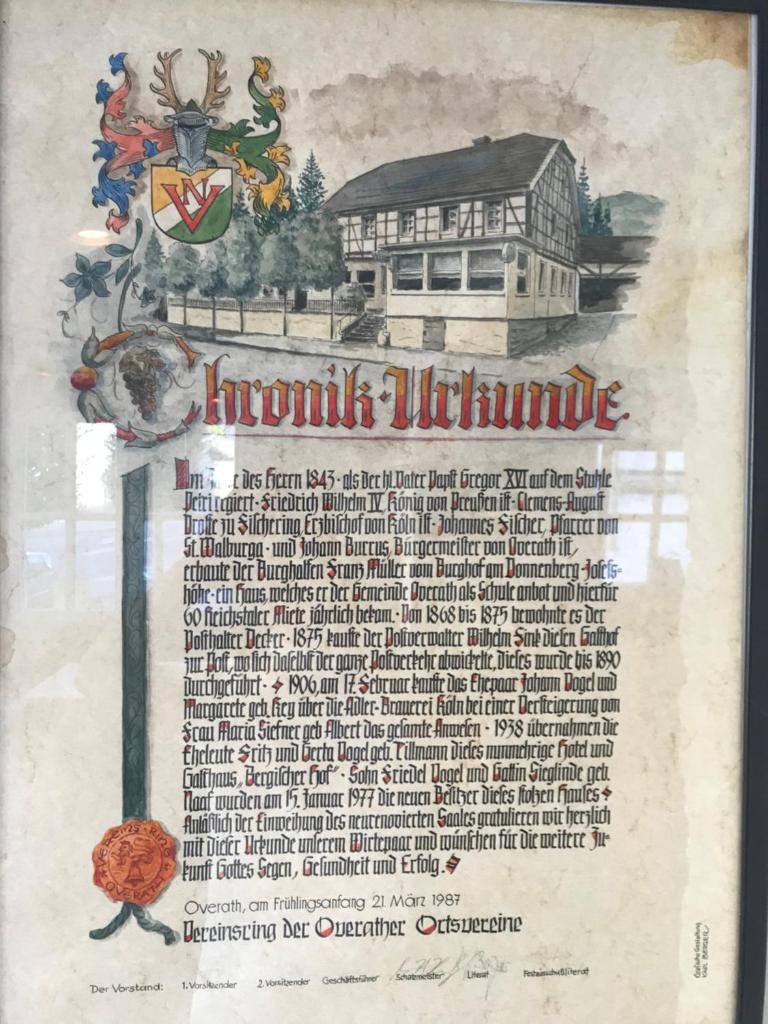 VN
Chronik-Urkunde
Im des Herrn 1843 · als der hl. Vater Papst Gregor XVI auf dem Stuhle
Petri regiert · Friedrich Wilhelm IV. König von Preußen ist · Clemens-August
Droste zu Fischering, Erzbischof von Köln ist · Johannes Fischer, Pfarrer von
St. Walburga · und Johann Burrus, Bürgermeister von Overath ist,
erbaute der Burghalfen Franz Müller vom Burghof am Donnenberg · Josefs=
höhe · ein Haus, welches er der Gemeinde Overath als Schule anbot und hierfür
60 Reichstaler Miete jährlich bekam · Von 1868 bis 1875 bewohnte es der
Posthalter Decker · 1875 kaufte der Postverwalter Wilhelm Fink diesen Gasthof
zur Post, wo sich daselbst der ganze Postverkehr abwickelte, dieses wurde bis 1890
durchgeführt · 1906, am 17. Februar kaufte das Ehepaar Johann Vogel und
Margarete geb. Key über die Adler-Brauerei Köln bei einer Versteigerung von
Frau Maria Siefner geb Albert das gesamte Anwesen · 1938 übernahmen die
Eheleute Fritz und Gerta Vogel geb. Tillmann dieses nunmehrige Hotel und
Gasthaus „Bergischer Hof" · Sohn Friedel Vogel und Gattin Sieglinde geb.
Naaf wurden am 15. Januar 1977 die neuen Besitzer dieses stolzen Hauses
Anläßlich der Einweihung des neurenovierten Saales gratulieren wir herzlich
mit dieser Urkunde unserem Wirtepaar und wünschen für die weitere Zu=
kunft Gottes Segen, Gesundheit und Erfolg.
VEREINS-RING
OVERATH
Overath, am Frühlingsanfang 21. März 1987
Vereinsring der Overather Ortsvereine
Der Vorstand: 1. Vorsitzender 2. Vorsitzender Geschäftsführer Schatzmeister Literat Festausschußliterat
Grafische Gestaltung
KARL BERGER